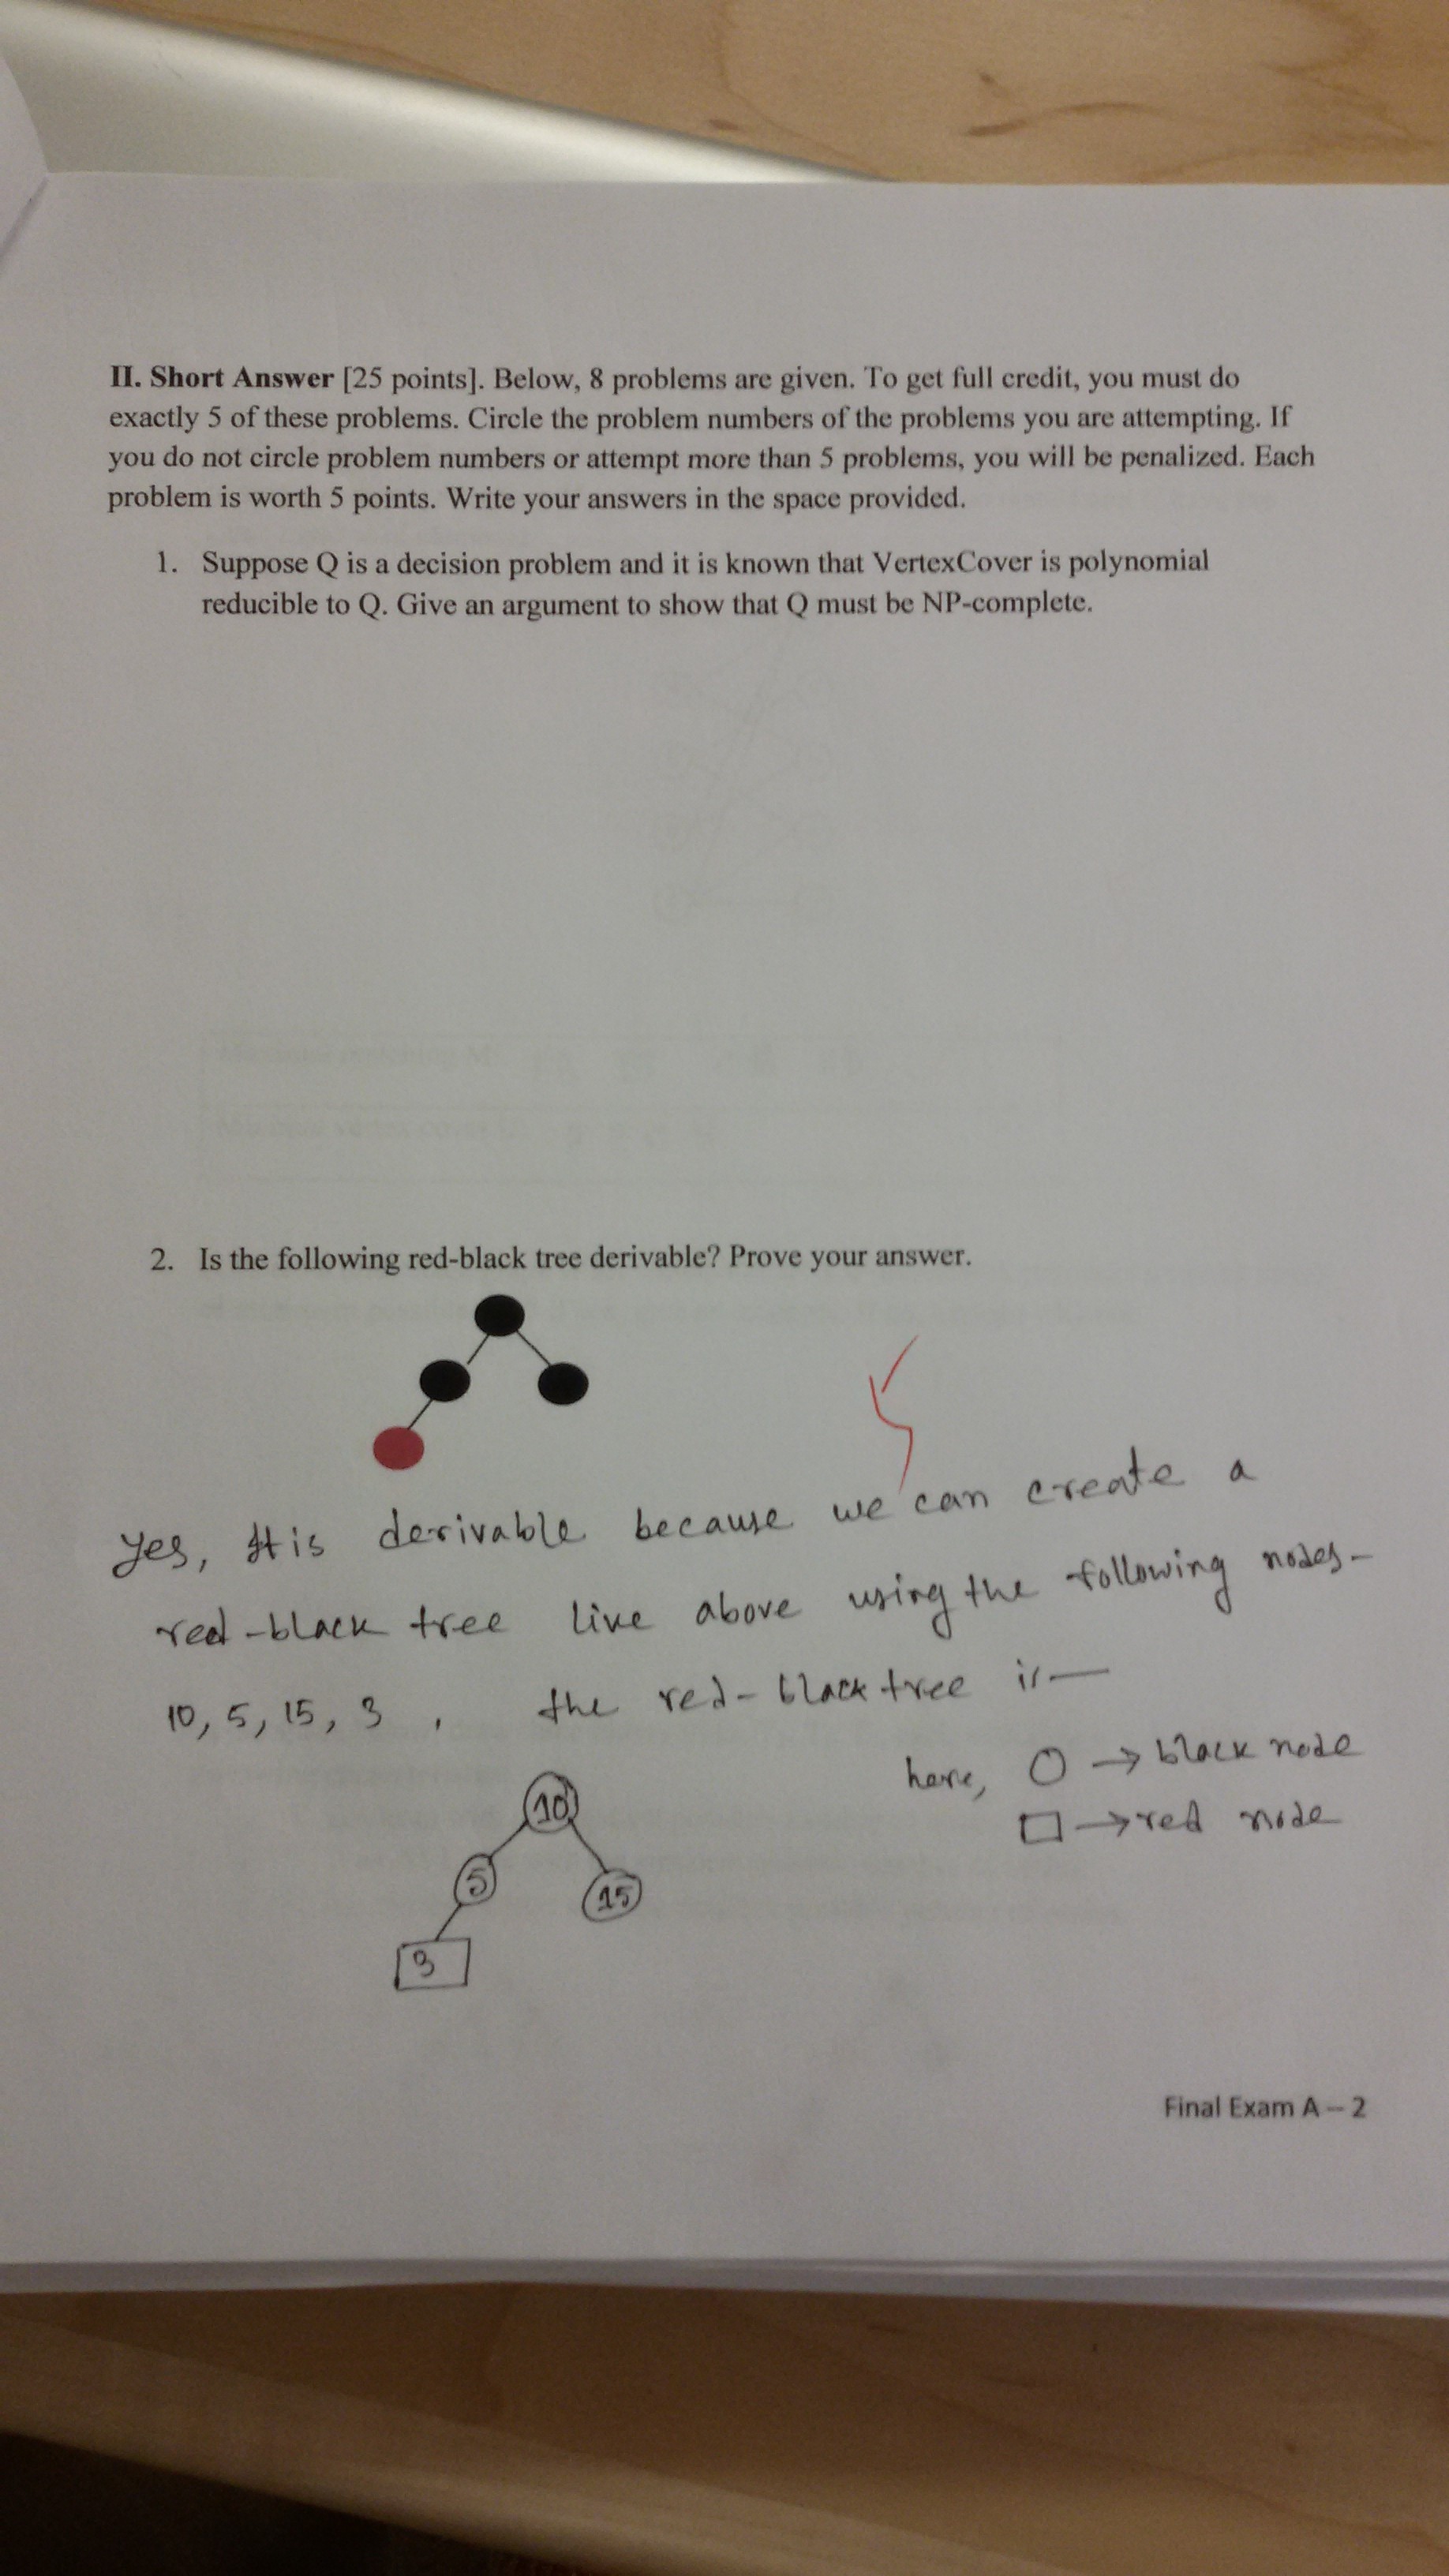 II. Short Answer [25 points]. Below, 8 problems are given. To get full credit, you must do
exactly 5 of these problems. Circle the problem numbers of the problems you are attempting. If
you do not circle problem numbers or attempt more than 5 problems, you will be penalized. Each
problem is worth 5 points. Write your answers in the space provided.
1. Suppose Q is a decision problem and it is known that VertexCover is polynomial
reducible to Q. Give an argument to show that Q must be NP-complete.
2. Is the following red-black tree derivable? Prove your answer.
Yes, It is derivable because we can create a
red-black tree like above using the following nodes-
10, 5, 15, 3 , the red-black tree is—
here, ○ → black node
□ → red node
10
5
15
3
Final Exam A – 2